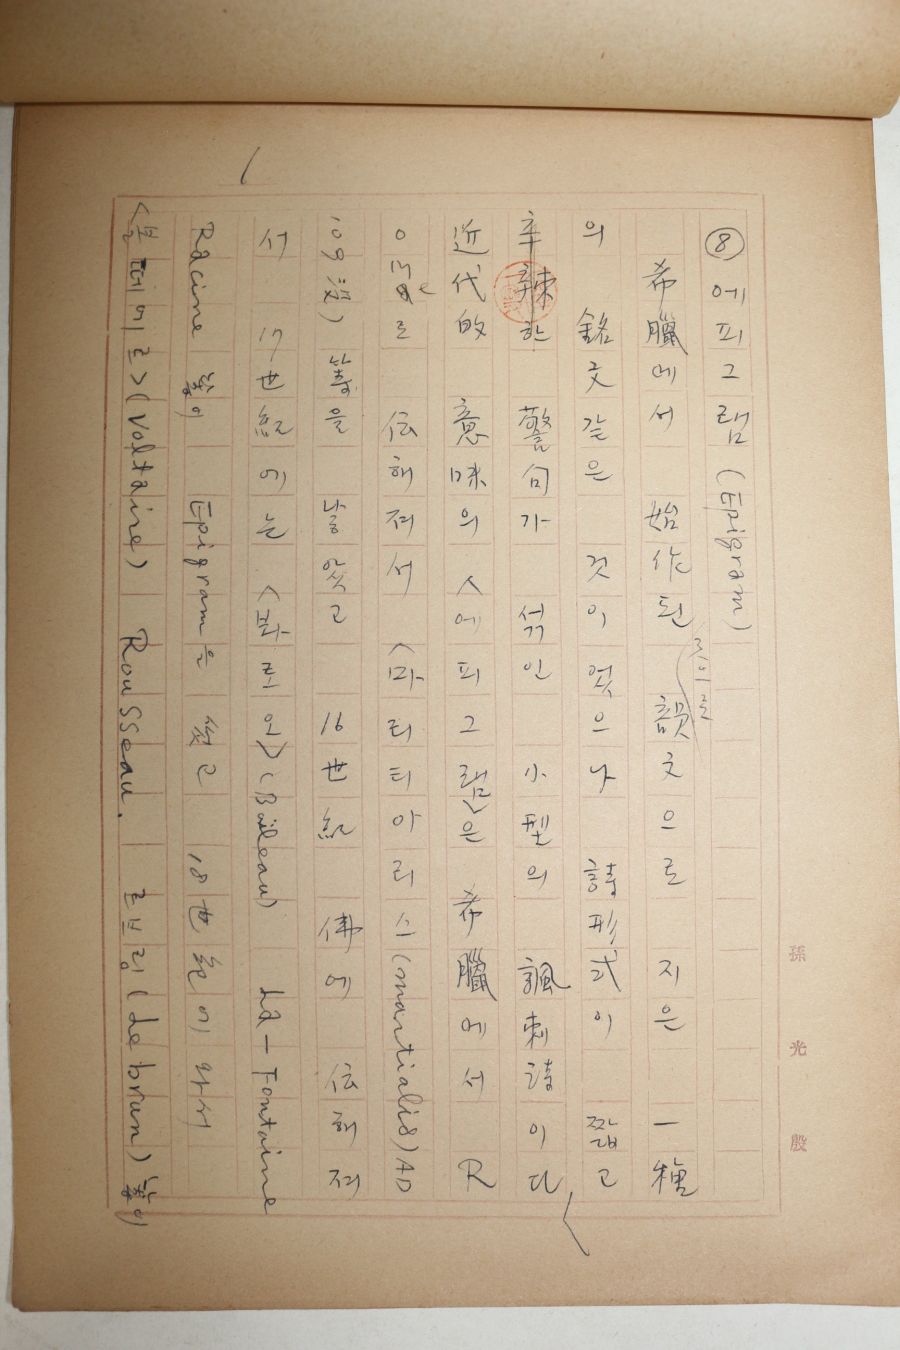 1
⑧ 에피그램 (Epigram)
希臘에서 始作된 韻文으로 지은 一種
으로
의 銘文같은 것이 였으나 詩形式이 짧고
辛辣한 警句가 섞인 小型의 諷刺詩이다
近代的 意味의 <에피그램>은 希臘에서 R
로 伝해져서 <마티티아리스>(martialis) AD
109 没) 等을 낳았고 16世紀 佛에 伝해져
서 17世紀에는 <봐로오> (Boileau) La-Fontaine
Racine 等이 Epigram을 썼고 18世紀에 와서
<볼테에르> (Voltaire) Rousseau. 르브렁 (Le brun) 等이
孫光殷